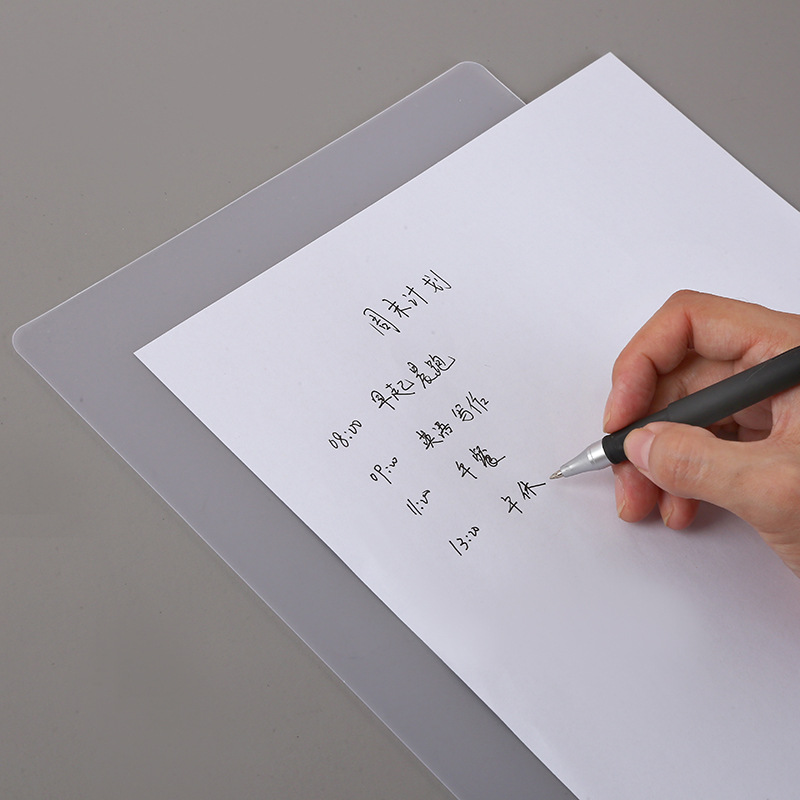 周末计划
08:00 早起晨跑
09:00 英语写作
11:00 午餐
13:00 午休